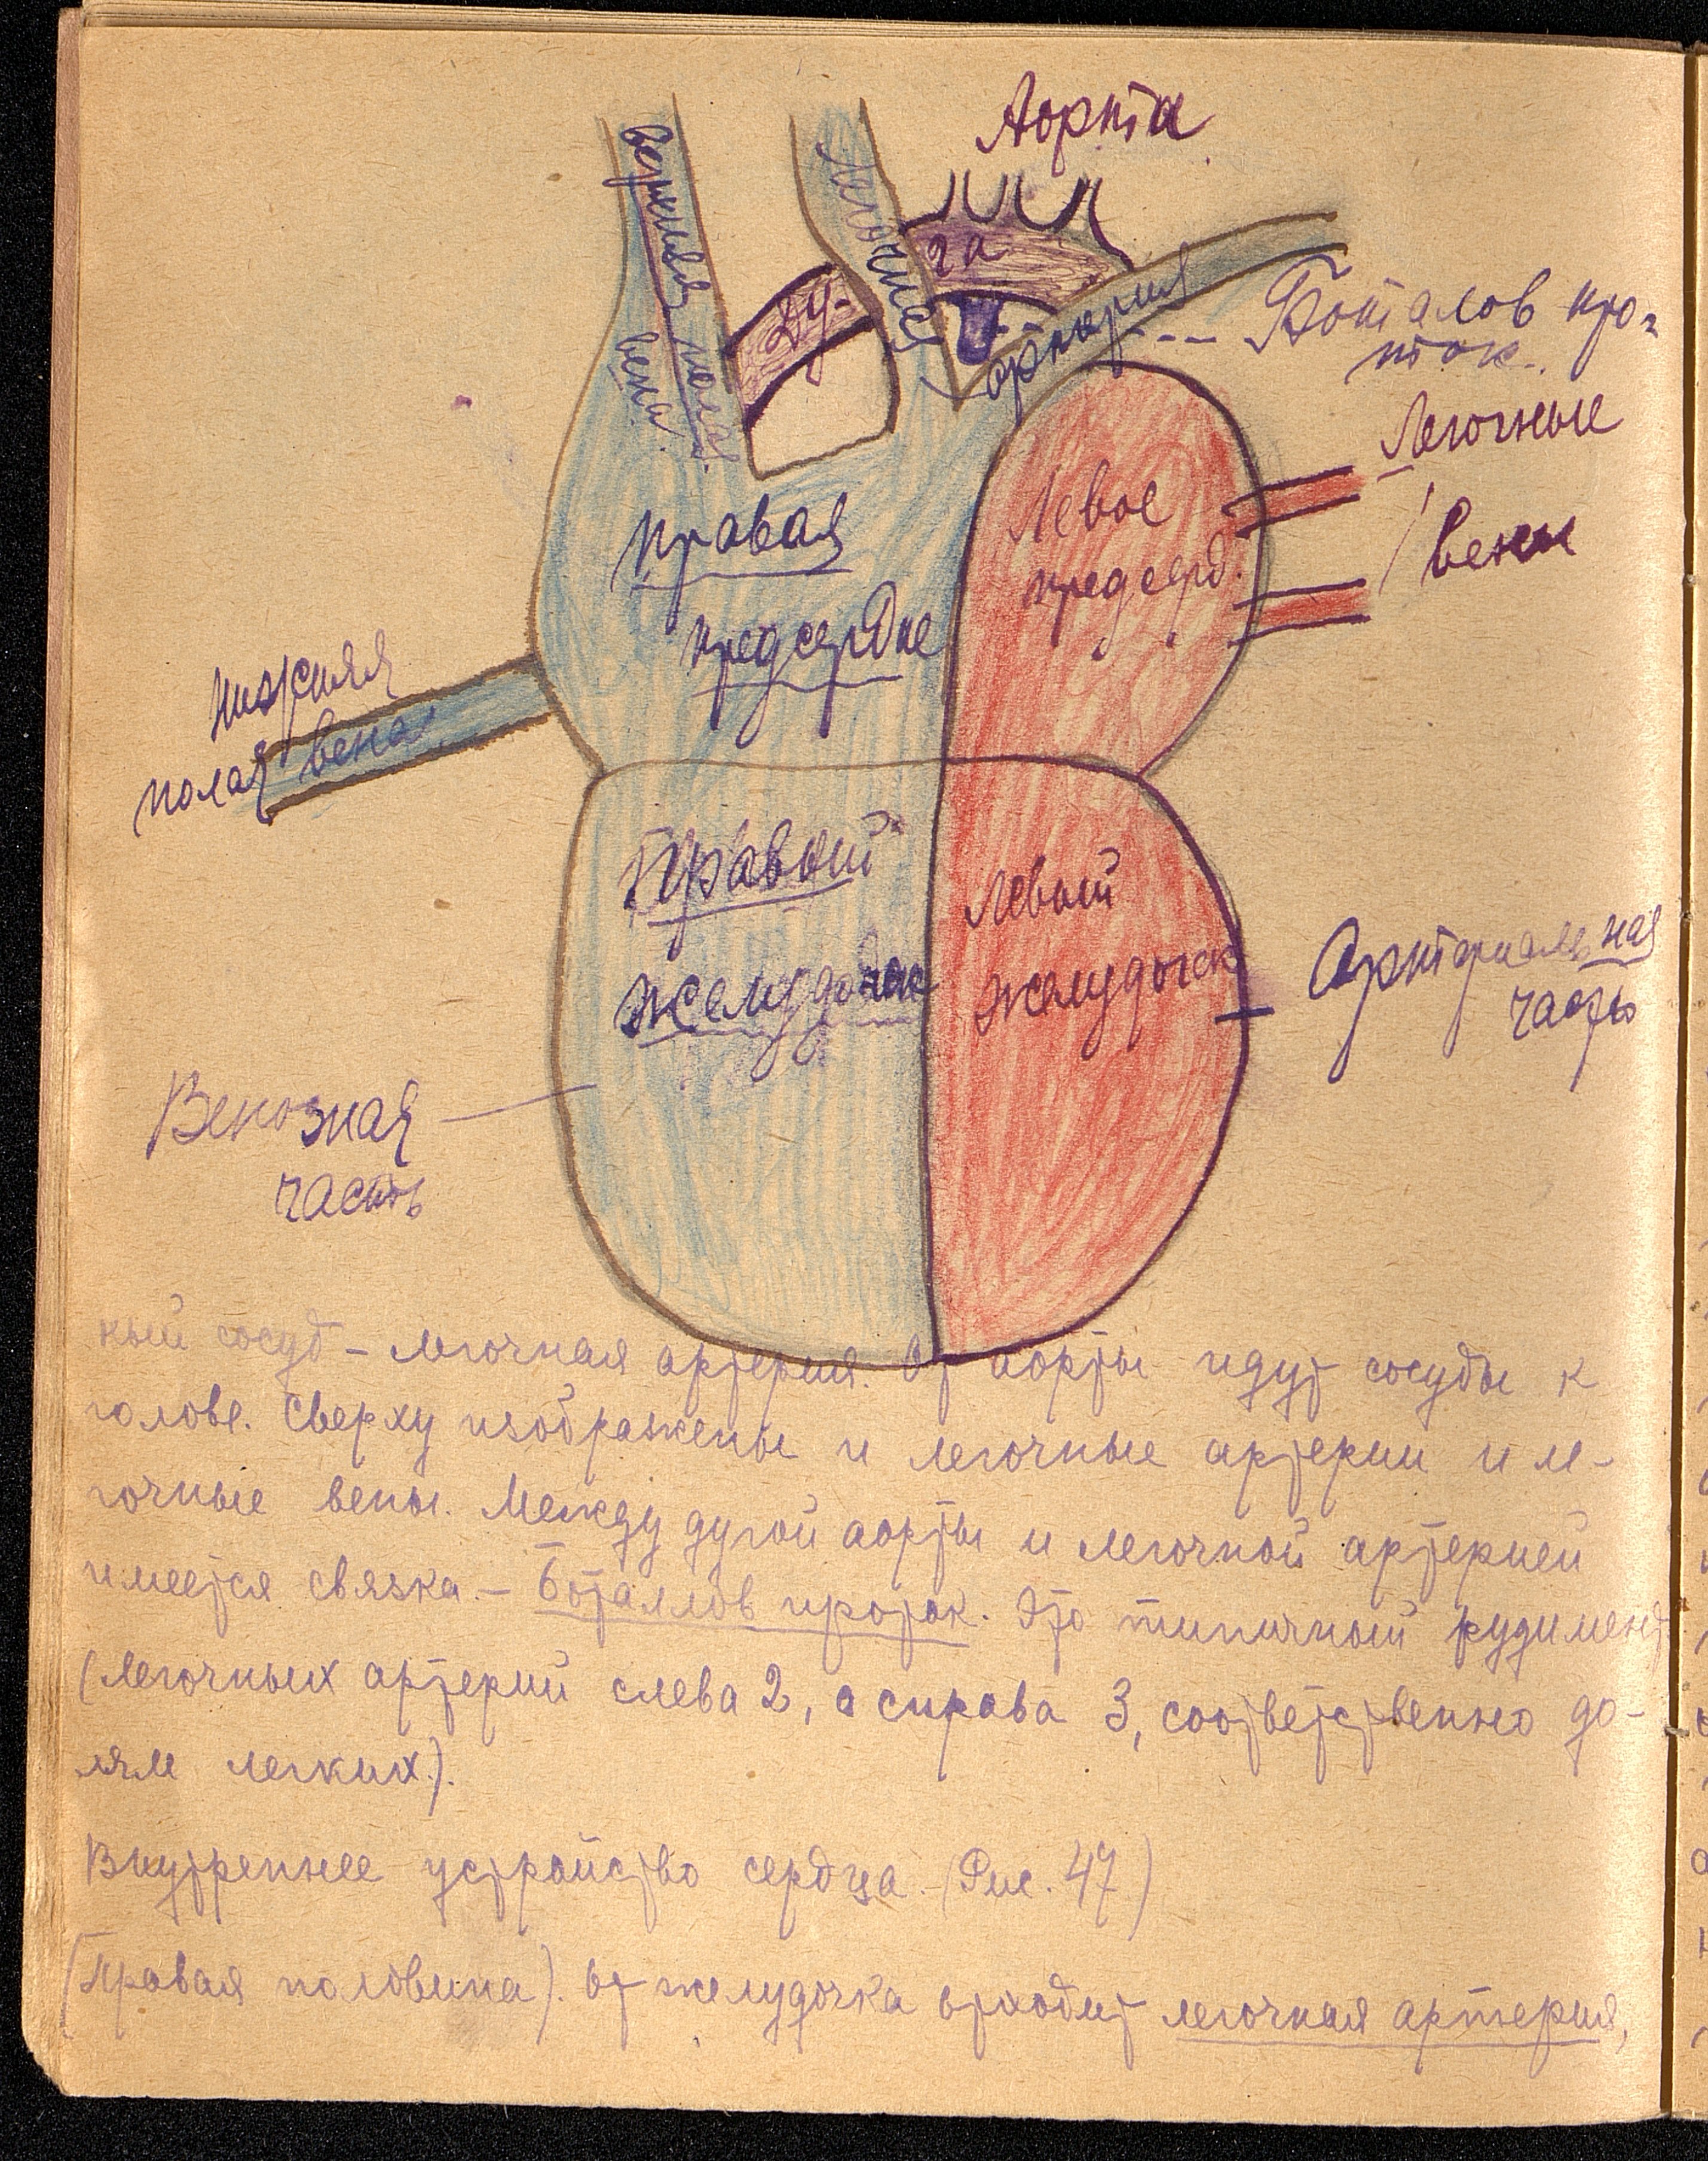 Аорта
верхняя полая
вена.
Легочная
артерия
Ду-
га
Боталов про-
ток.
Легочные
вены
Правая
предсердие
Левое
предсерд.
Нижняя
полая вена.
Правый
желудочек
Левый
желудочек
Артериальная
часть
Венозная
часть
ный сосуд – легочная артерия. От аорты идут сосуды к
голове. Сверху изображены и легочные артерии и ле-
гочные вены. Между дугой аорты и легочной артерией
имеется связка – Боталлов проток. Это типичный рудимент
(легочных артерий слева 2, а справа 3, соответственно до-
лям легких).
Внутреннее устройство сердца. (Рис. 47)
(Правая половина). От желудочка отходит легочная артерия,